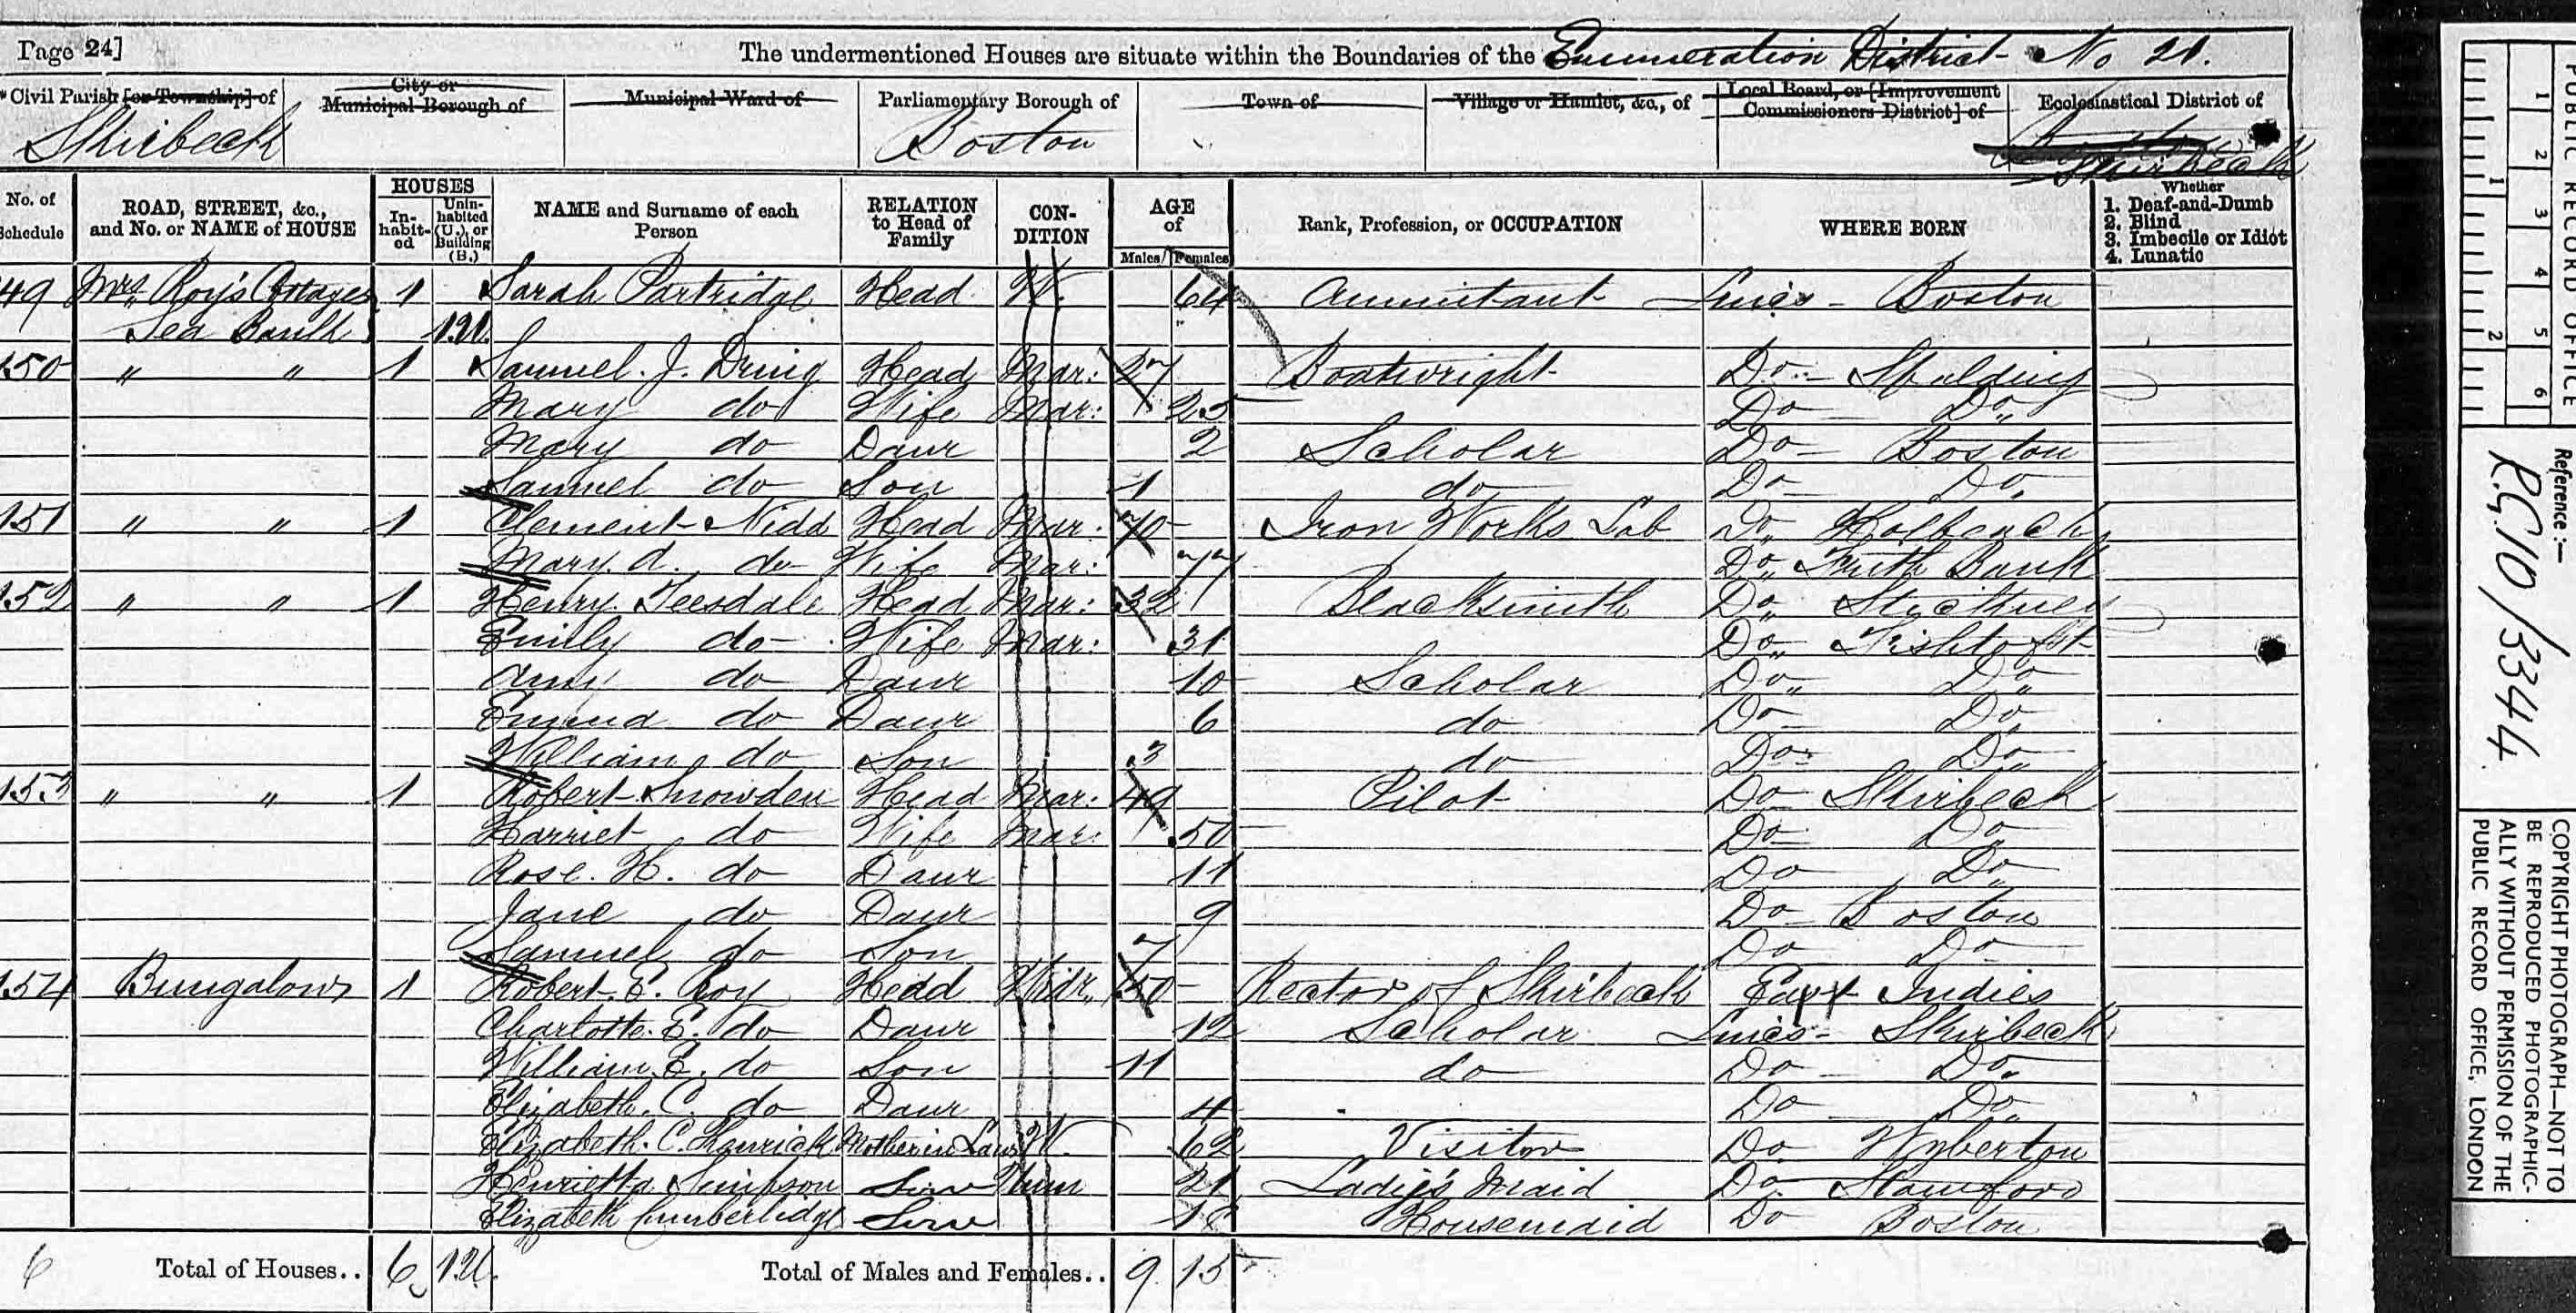 Page 24] The undermentioned Houses are situate within the Boundaries of the Enumeration District No 21.
* Civil Parish [or Township] of City or Municipal Borough of Municipal Ward of Parliamentary Borough of Town of Village or Hamlet, &c., of Local Board, or [Improvement Commissioners District] of Ecclesiastical District of
Skirbeck Boston Skirbeck
No. of Schedule ROAD, STREET, &c., and No. or NAME of HOUSE HOUSES Inhabited Uninhabited (U.), or Building (B.) NAME and Surname of each Person RELATION to Head of Family CONDITION AGE of Males Females Rank, Profession, or OCCUPATION WHERE BORN Whether 1. Deaf-and-Dumb 2. Blind 3. Imbecile or Idiot 4. Lunatic
49 Mrs Roy's Cottages 1 Sarah Partridge Head W. 64 Annuitant Lincs - Boston
Sea Bank 1 U.
150 " " 1 Samuel. J. Dring Head Mar: 27 Boatwright Do - Spalding
Mary do Wife Mar: 25 Do Do
Mary do Daur 2 Scholar Do - Boston
Samuel do Son 1 do Do - Do.
151 " " 1 Clement Nidd Head Mar. 70 Iron Works Lab Do Holbeach
Mary. A. do Wife Mar: 77 Do Frith Bank
152 " " 1 Henry Teesdale Head Mar: 32 Blacksmith Do Stickney
Emily do Wife Mar: 31 Do Fishtoft
Amy do Daur 10 Scholar Do Do
Emma do Daur 6 do Do Do
William do Son 3 do Do Do
153 " " 1 Robert Snowden Head Mar. 49 Pilot Do Skirbeck
Harriet do Wife Mar: 50 Do Do
Rose. H. do Daur 11 Do Do
Jane do Daur 9 Do Boston
Samuel do Son 7 Do Do
154 Bungalow 1 Robert. E. Roy Head Widr. 50 Rector of Skirbeck East Indies
Charlotte. E. do Daur 12 Scholar Lincs - Skirbeck
William. E. do Son 11 do Do - Do.
Elizabeth. C. do Daur 4 Do - Do
Elizabeth. C. Mother in Law W. 62 Visitor Do Wyberton
Henrietta Simpson Serv Unm 21 Ladys Maid Do Stamford
Elizabeth Cumberlidge Serv 18 Housemaid Do Boston
6 Total of Houses.. 6 1 U. Total of Males and Females.. 9 15
PUBLIC RECORD OFFICE
1 2 3 4 5 6
1 2
Reference:-
R.G. 10/3344
COPYRIGHT PHOTOGRAPH—NOT TO
BE REPRODUCED PHOTOGRAPHIC-
ALLY WITHOUT PERMISSION OF THE
PUBLIC RECORD OFFICE, LONDON